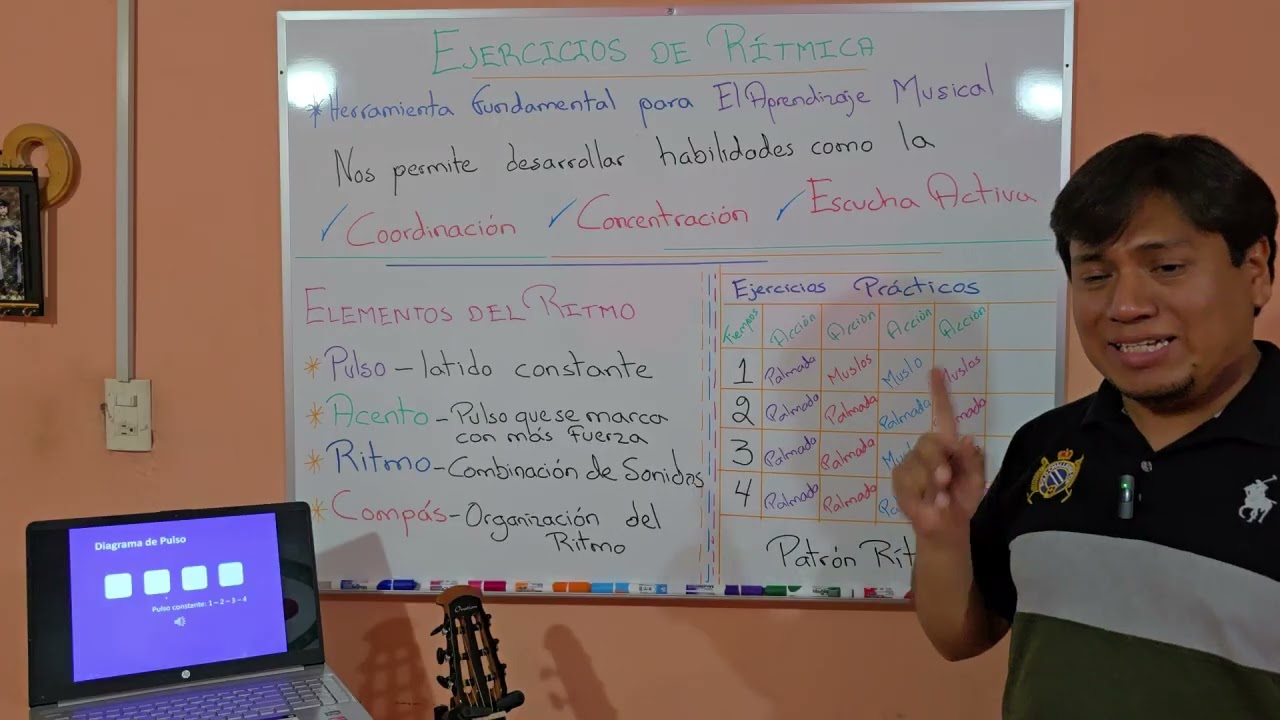 EJERCICIOS DE RÍTMICA
*Herramienta fundamental para El Aprendizaje Musical
Nos permite desarrollar habilidades como la
✓ Coordinación ✓ Concentración ✓ Escucha Activa
ELEMENTOS DEL RITMO
* Pulso – latido constante
* Acento – Pulso que se marca
con más fuerza
* Ritmo – Combinación de Sonidos
* Compás – Organización del
Ritmo
Ejercicios Prácticos
Tiempos Acción Acción Acción Acción
1 Palmada Muslos Muslo Muslos
2 Palmada Palmada Palmada
3 Palmada Palmada
4 Palmada Palmada
Patrón
Diagrama de Pulso
Pulso constante: 1 – 2 – 3 – 4
hp
Ovation